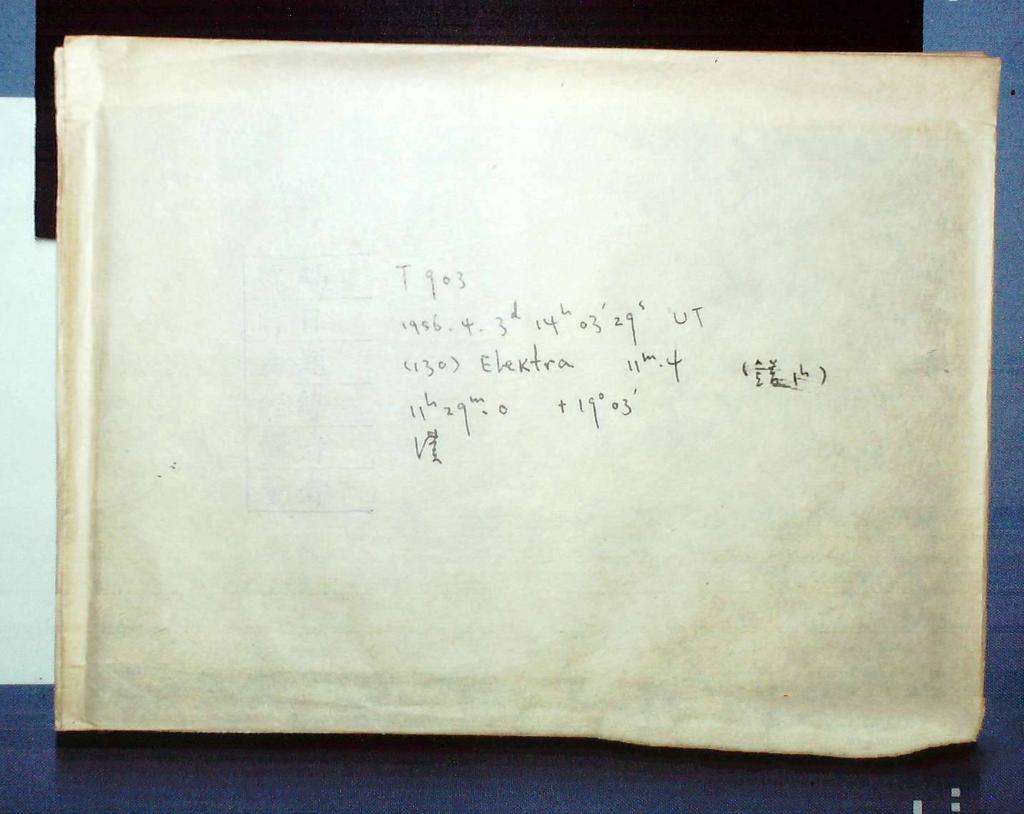 T 903
1956. 4. 3ᵈ 14ʰ 03′ 29ˢ UT
(130) Elektra 11ᵐ.4
11ʰ 29ᵐ.0 +19° 03′